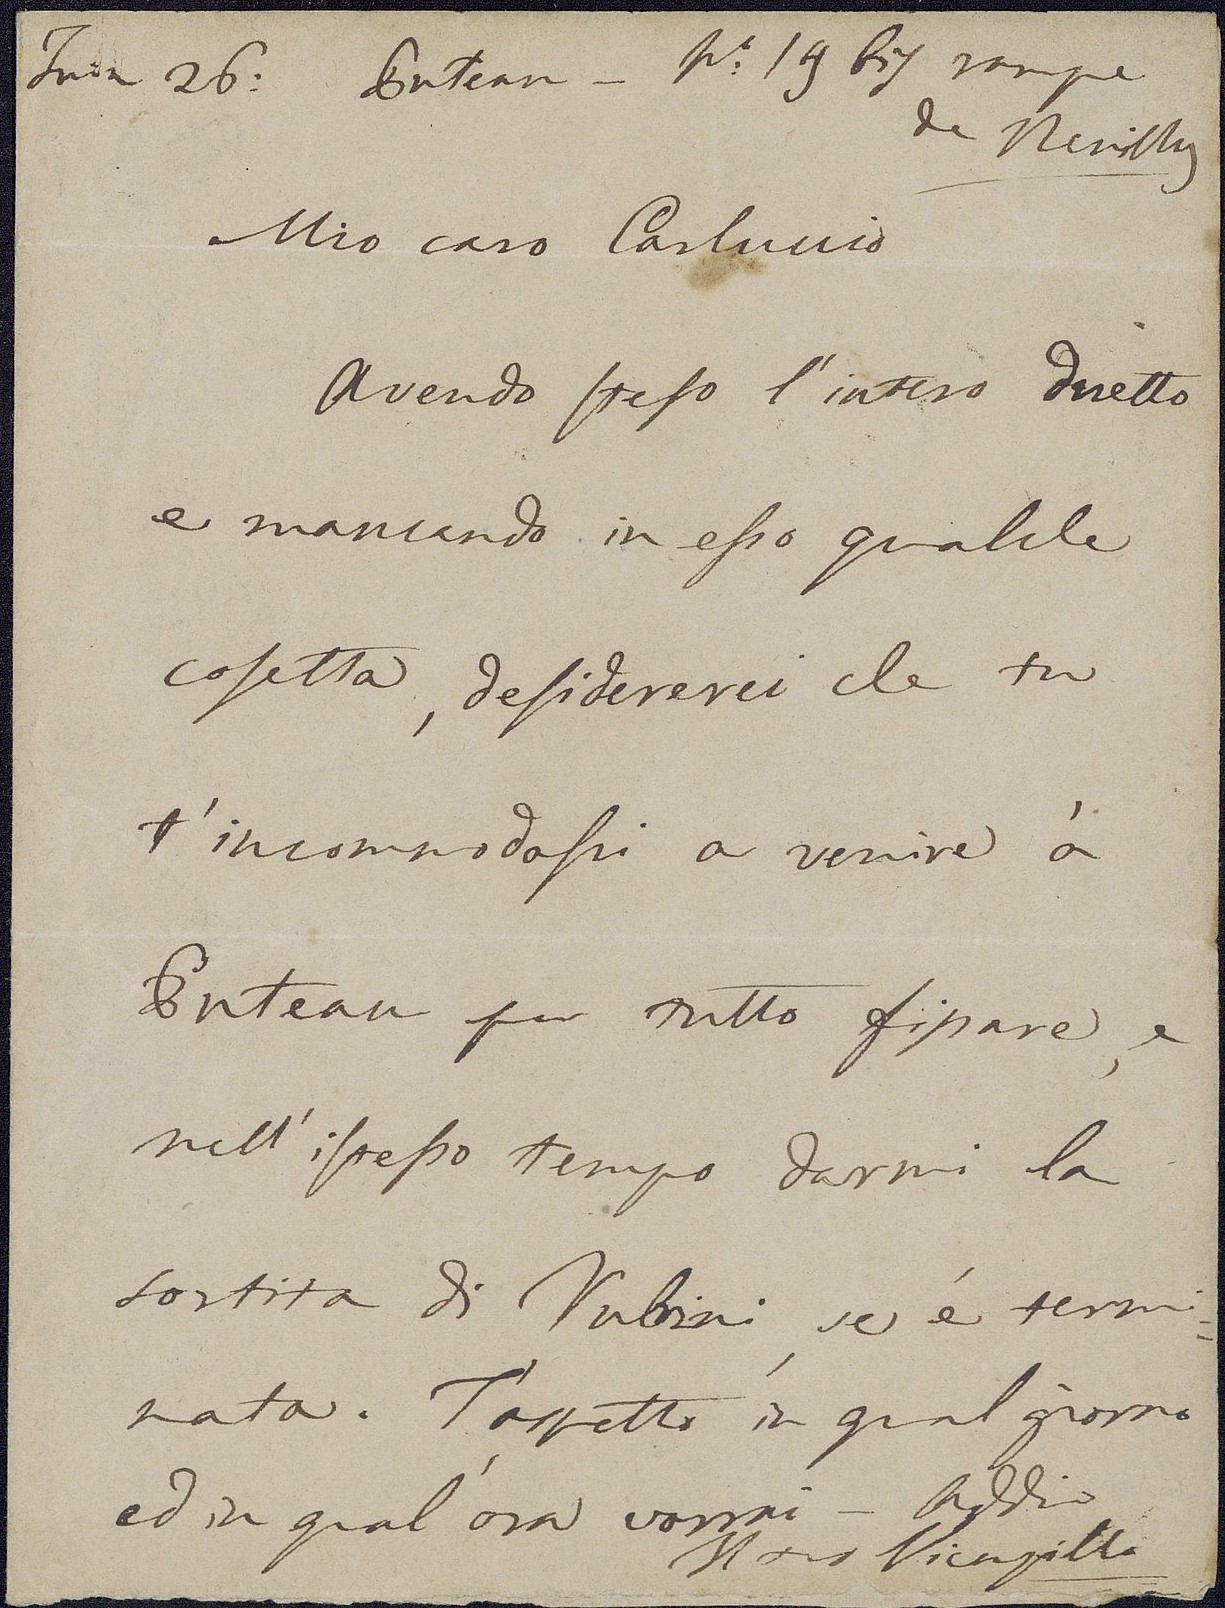 Juin 26: Puteau – N.º 19 bis rampe
de Neuilly
Mio caro Carluccio
Avendo steso l'intero duetto
e mancando in esso qualche
cosetta, desidererei che tu
t'incommodassi a venire á
Puteau per tutto fissare, e
nell'istesso tempo darmi la
sortita di Rubini, se é termi=
nata. T'aspetto in qual giorno
ed in qual'ora vorrai – Addio
Il tuo Vicenzillo